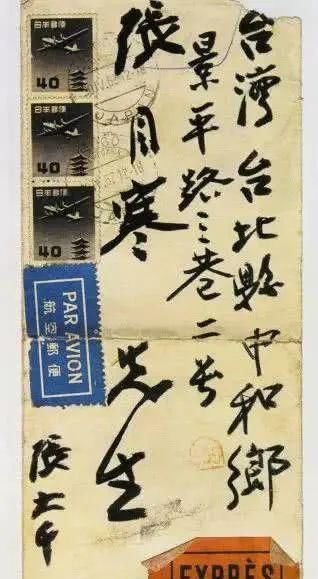 台灣 台北縣中和鄉
景平路三巷二号
張目寒 先生
張大千
日本郵便
40
日本郵便
40
日本郵便
40
PAR AVION
航空郵便
EXPRÈS